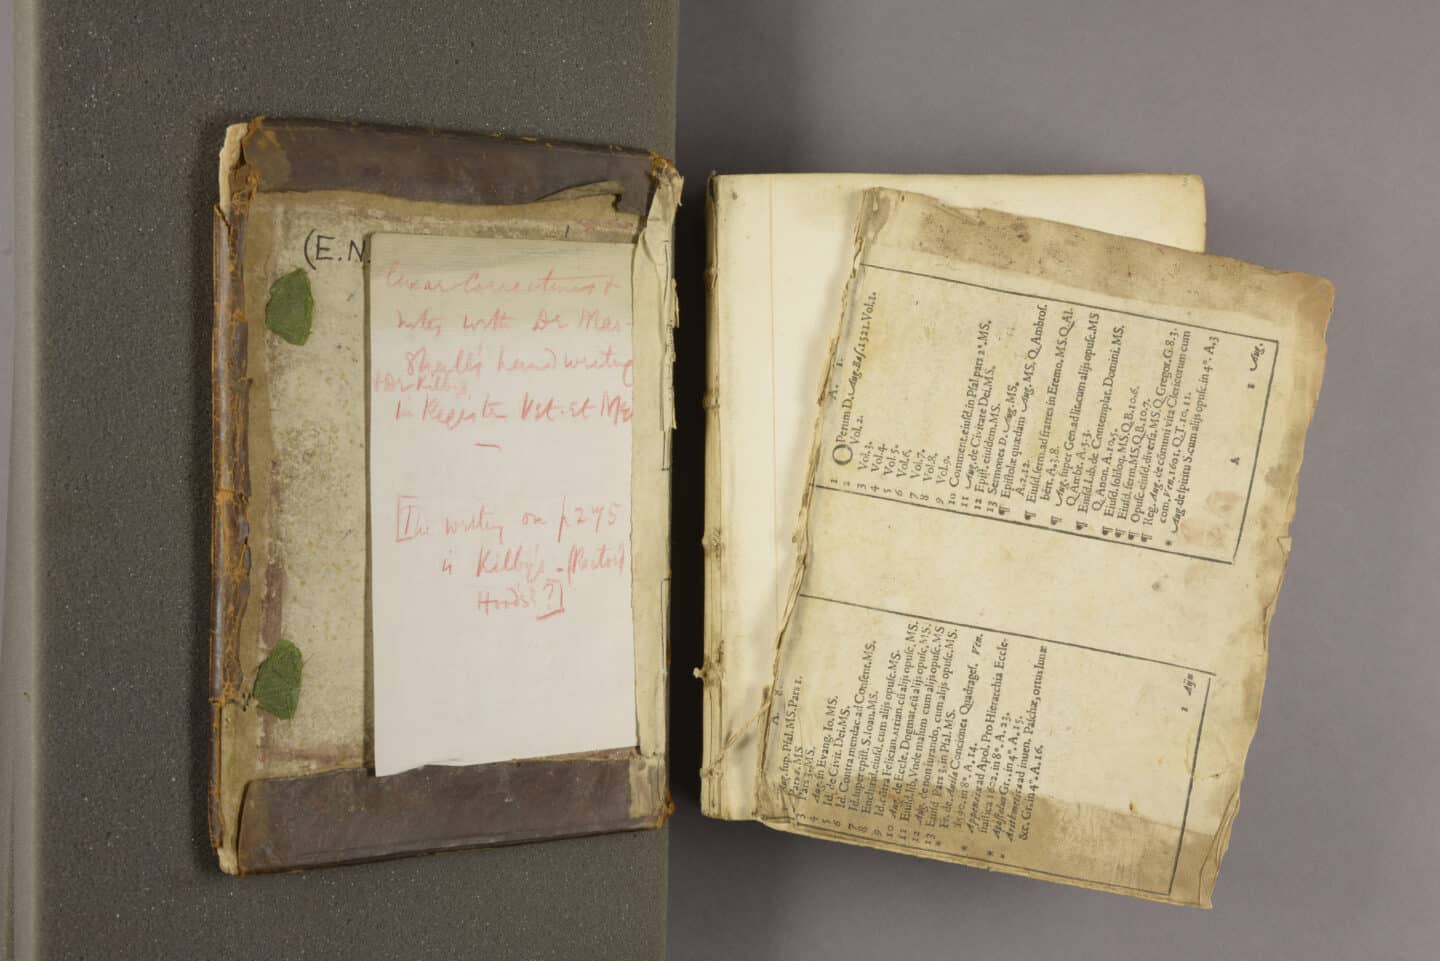 (E.N.
Corrections &
notes with Dr Mar-
shall's handwriting
& Dr Kilby
in Register Vet. et Me
[The writing on p 245
is Kilby's - (Rector)
Hoods? ?]
A. 1.
1 OPerum D. Aug. Bas. 1521. Vol. 1.
2 Vol. 2.
3 Vol. 3.
4 Vol. 4.
5 Vol. 5.
6 Vol. 6.
7 Vol. 7.
8 Vol. 8.
9 Vol. 9.
10 Comment. eiusd. in Psal. pars 2ª. MS.
11 Aug. de Civitate Dei. MS.
12 Epist. eiusdem. MS.
13 Sermones D. Aug. MS.
¶ Epistolæ quædam Aug. MS. Q. Ambros.
A. 2. 12.
¶ Eiusd. serm. ad fratres in Eremo. MS. Q. Al-
bert. A. 3. 8.
¶ Aug. super Gen. ad lit. cum alijs opusc. MS
Q. Ambr. A. 5. 3.
¶ Eiusd. Lib. de Contemplat. Domini. MS.
Q. Anon. A. 10. 5.
¶ Eiusd. soliloq. MS. Q. B. 10. 6.
¶ Eiusd. serm. MS. Q. B. 10. 7.
¶ Opusc. eiusd. diversa. MS. Q. Gregor. G. 8. 3.
¶ Reg. Aug. de cōmuni vita Clericorum cum
com. Ven. 1601. Q. T. 10. 11.
* Aug. de spiritu S. cum alijs opusc. in 4º. A. 3
A 1 Aug.
A. 8.
Aug. sup. Psal. MS. Pars 1.
Pars 2. MS
3 Pars 3. MS.
4 Aug. in Evang. Io. MS.
5 Id. de Civit. Dei. MS.
6 Id. Contra mendac. ad Consent. MS.
7 Id. super epist. S. Ioan. MS.
8 Enchirid. eiusd. cum alijs opusc. MS.
9 Id. cōtra Felician. Arrian. cū alijs opusc. MS.
10 Aug. de Eccle. Dogmat. cū alijs opusc. MS.
11 Eiusd. lib. Vnde malum cum alijs opusc. MS
12 Aug. de non iurando, cum alijs opusc. MS.
13 Eiusd. Pars 3. in Psal. MS.
* Fr. de Avila Conciones Quadrages. Ven.
1590. in 8º. A. 14.
* Appendix ad Apol. Pro Hierarchia Eccle-
siastica 1602. in 8º. A. 23.
* Apostolius Gr. in 4º. A. 15.
* Arithmetica ad inuen. Paschæ, ortus lunæ
&c. Gr. in 4º. A. 16.
1